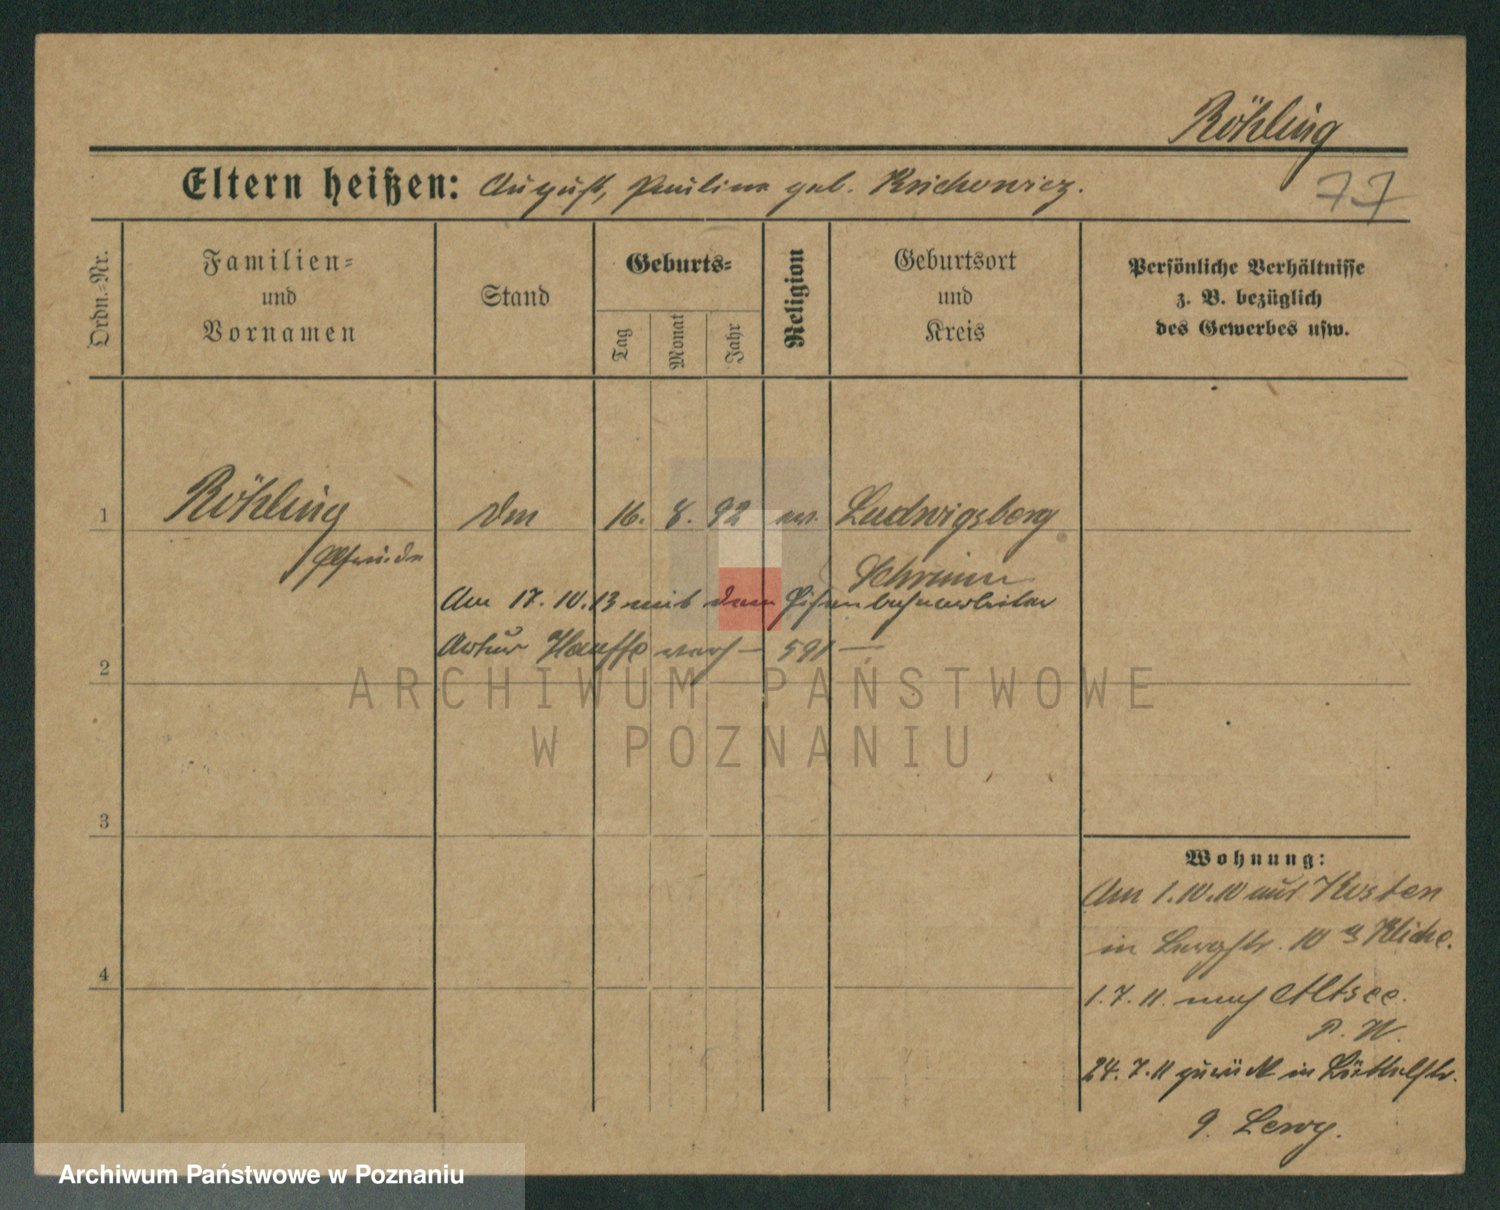 Röhling
77
Eltern heißen: August, Pauline geb. Krichowicz.
Ordn.-Nr.
Familien-
und
Vornamen
Stand
Geburts-
Tag
Monat
Jahr
Religion
Geburtsort
und
Kreis
Persönliche Verhältnisse
z. B. bezüglich
des Gewerbes usw.
1
Röhling
16. 8. 92 ev. Ludwigsberg
Schrimm
Am 17.10.13 mit dem Eisenbahnarbeiter
2
Artur Hauffe verh – 591 —
3
4
Wohnung:
Am 1.10.10 aus Kosten
in 10
1.7.11. nach Altsee.
P. W.
24.7.11 zurück in
9.
ARCHIWUM PAŃSTWOWE
W POZNANIU
Archiwum Państwowe w Poznaniu